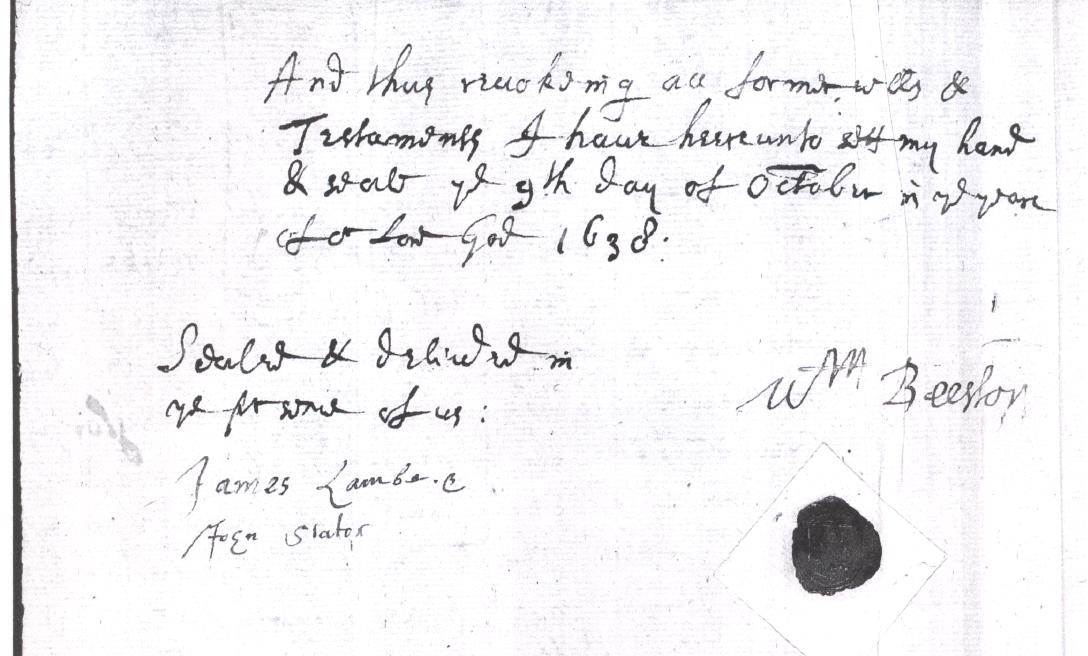 And thus revokeing all former wills &
Testaments I haue hereunto sett my hand
& seale ye 9th day of October in ye yeare
of or Lord God 1638.
Sealed & deliued in
ye prsence of us:
Wm Beeston
James Lambe
John Slator